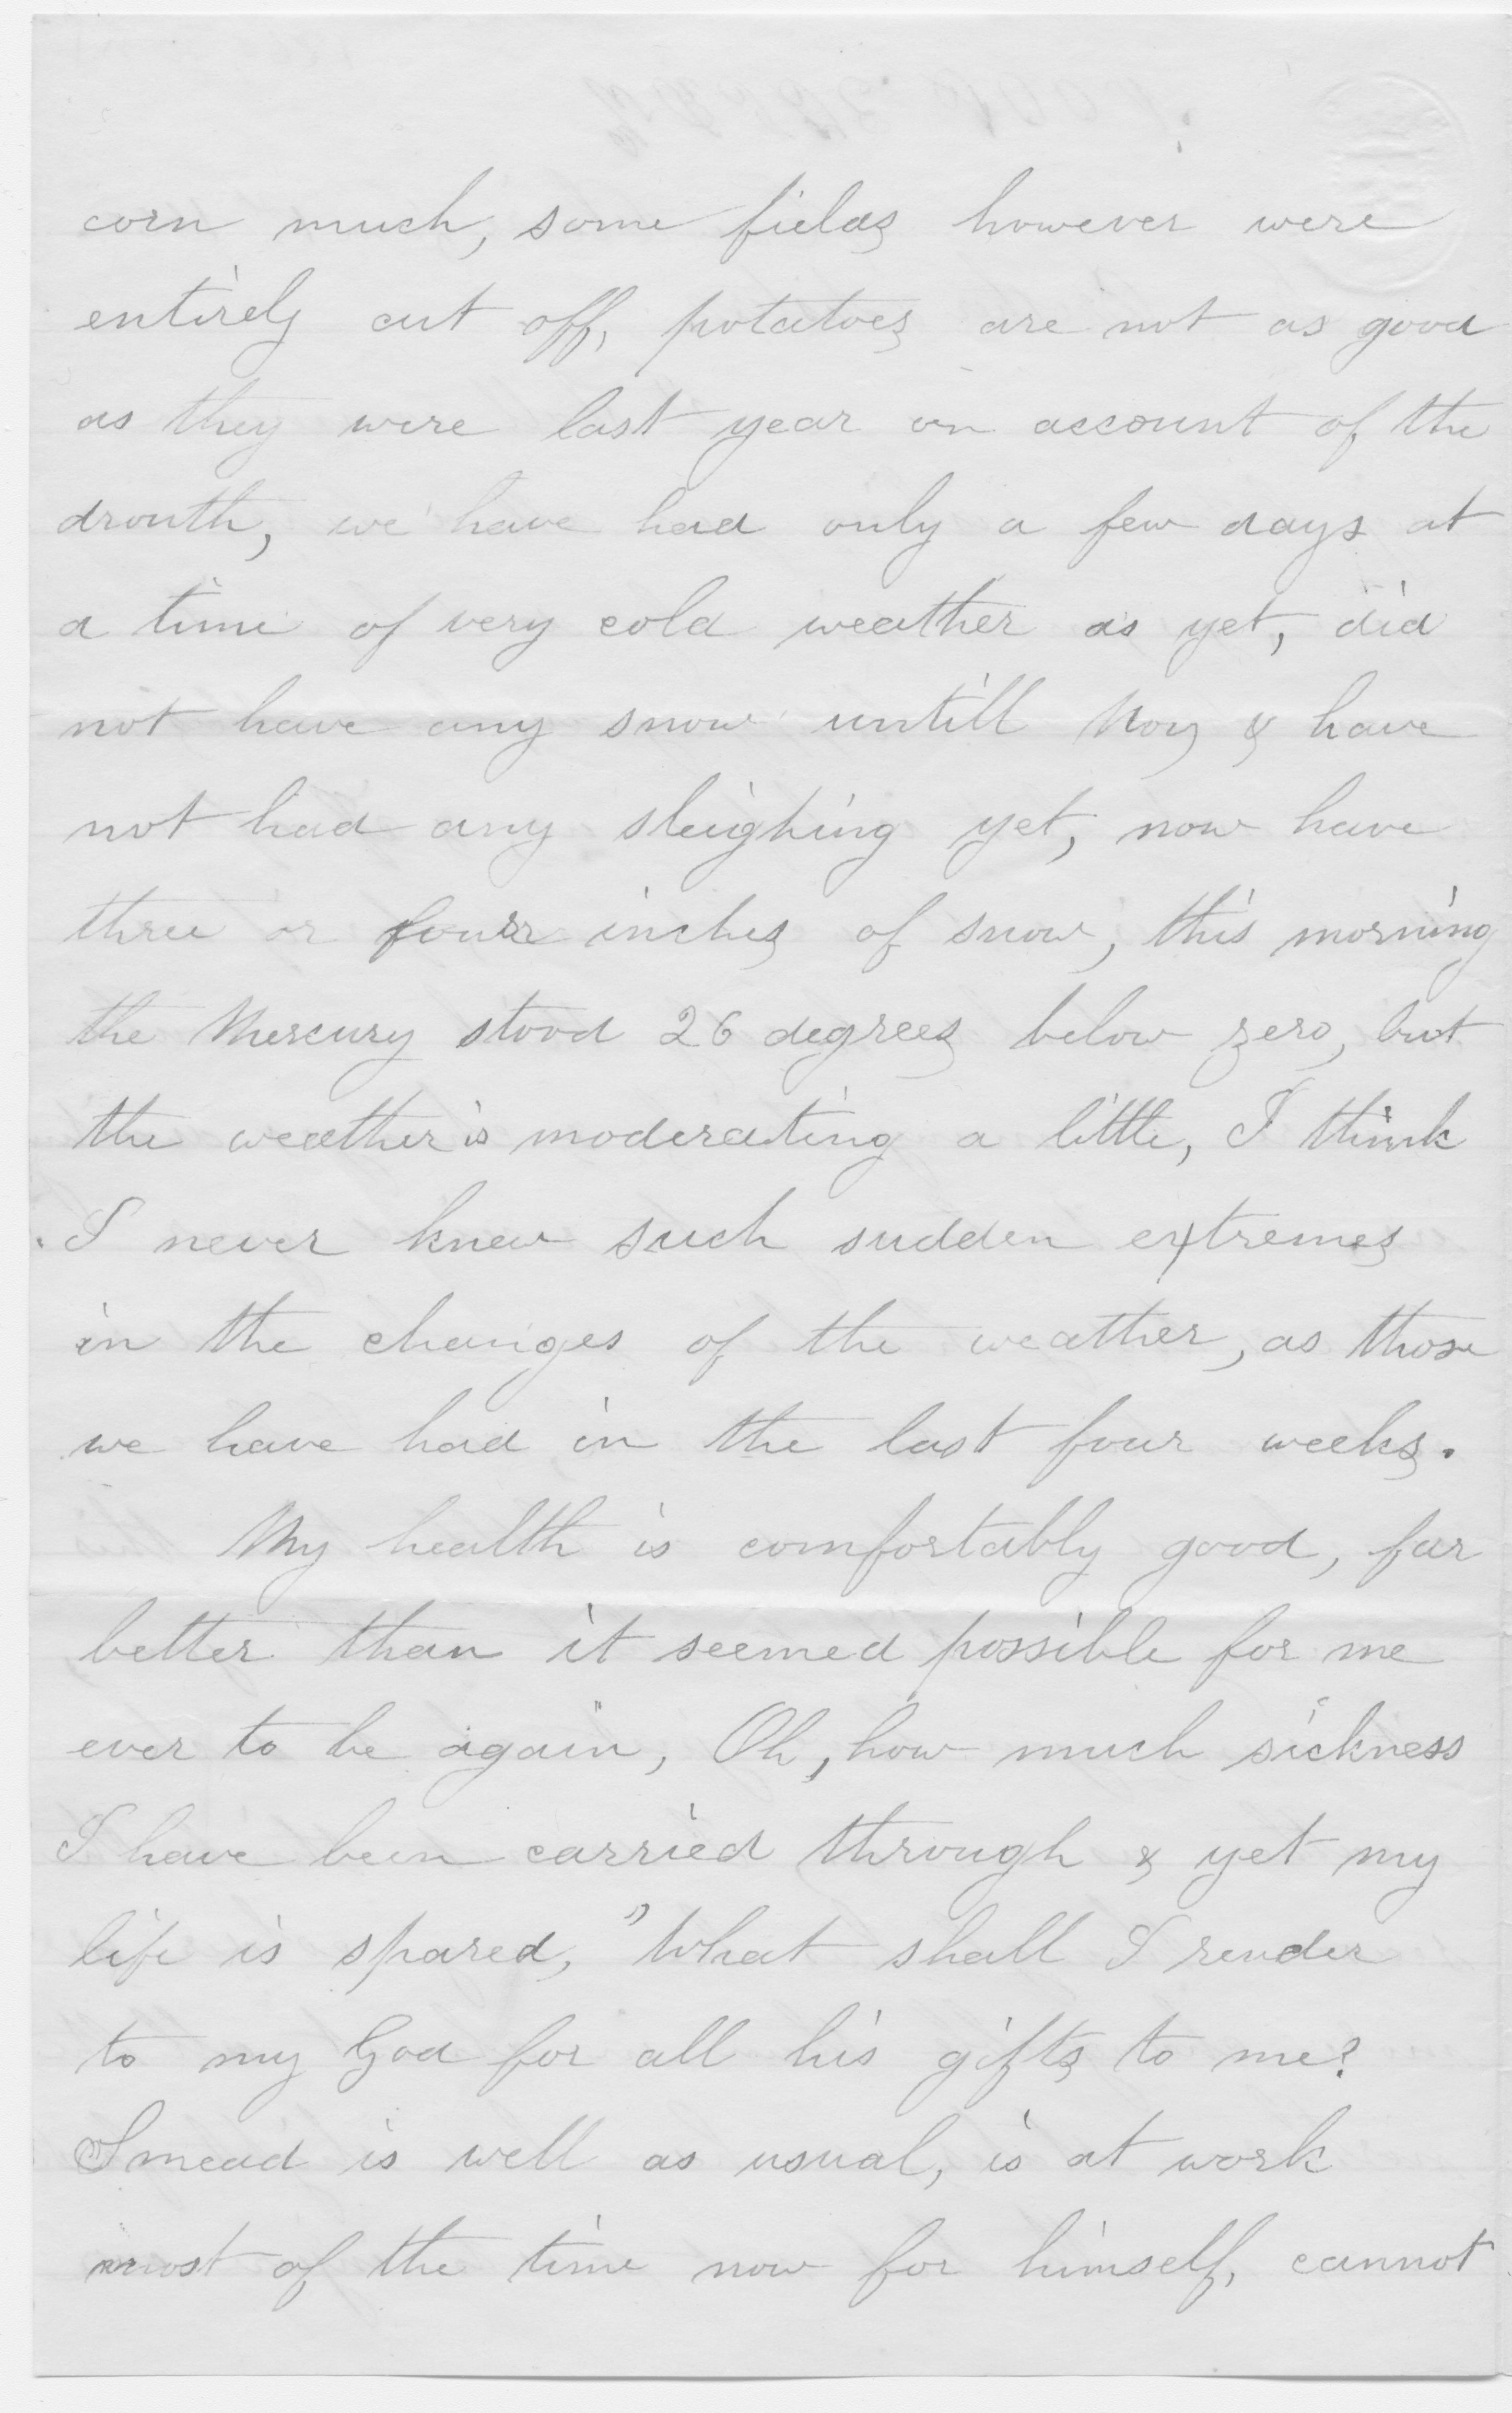 corn much, some fields however were
entirely cut off, potatoes are not as good
as they were last year on account of the
drouth, we have had only a few days at
a time of very cold weather as yet, did
not have any snow untill Nov & have
not had any sleighing yet, now have
three or four inches of snow, this morning
the Mercury stood 26 degrees below zero, but
the weather is moderating a little, I think
I never knew such sudden extremes
in the changes of the weather, as those
we have had in the last four weeks.
My health is comfortably good, far
better than it seemed possible for me
ever to be again, Oh, how much sickness
I have been carried through & yet my
life is spared, "What shall I render
to my God for all his gifts to me?
Smead is well as usual, is at work
most of the time now for himself, cannot